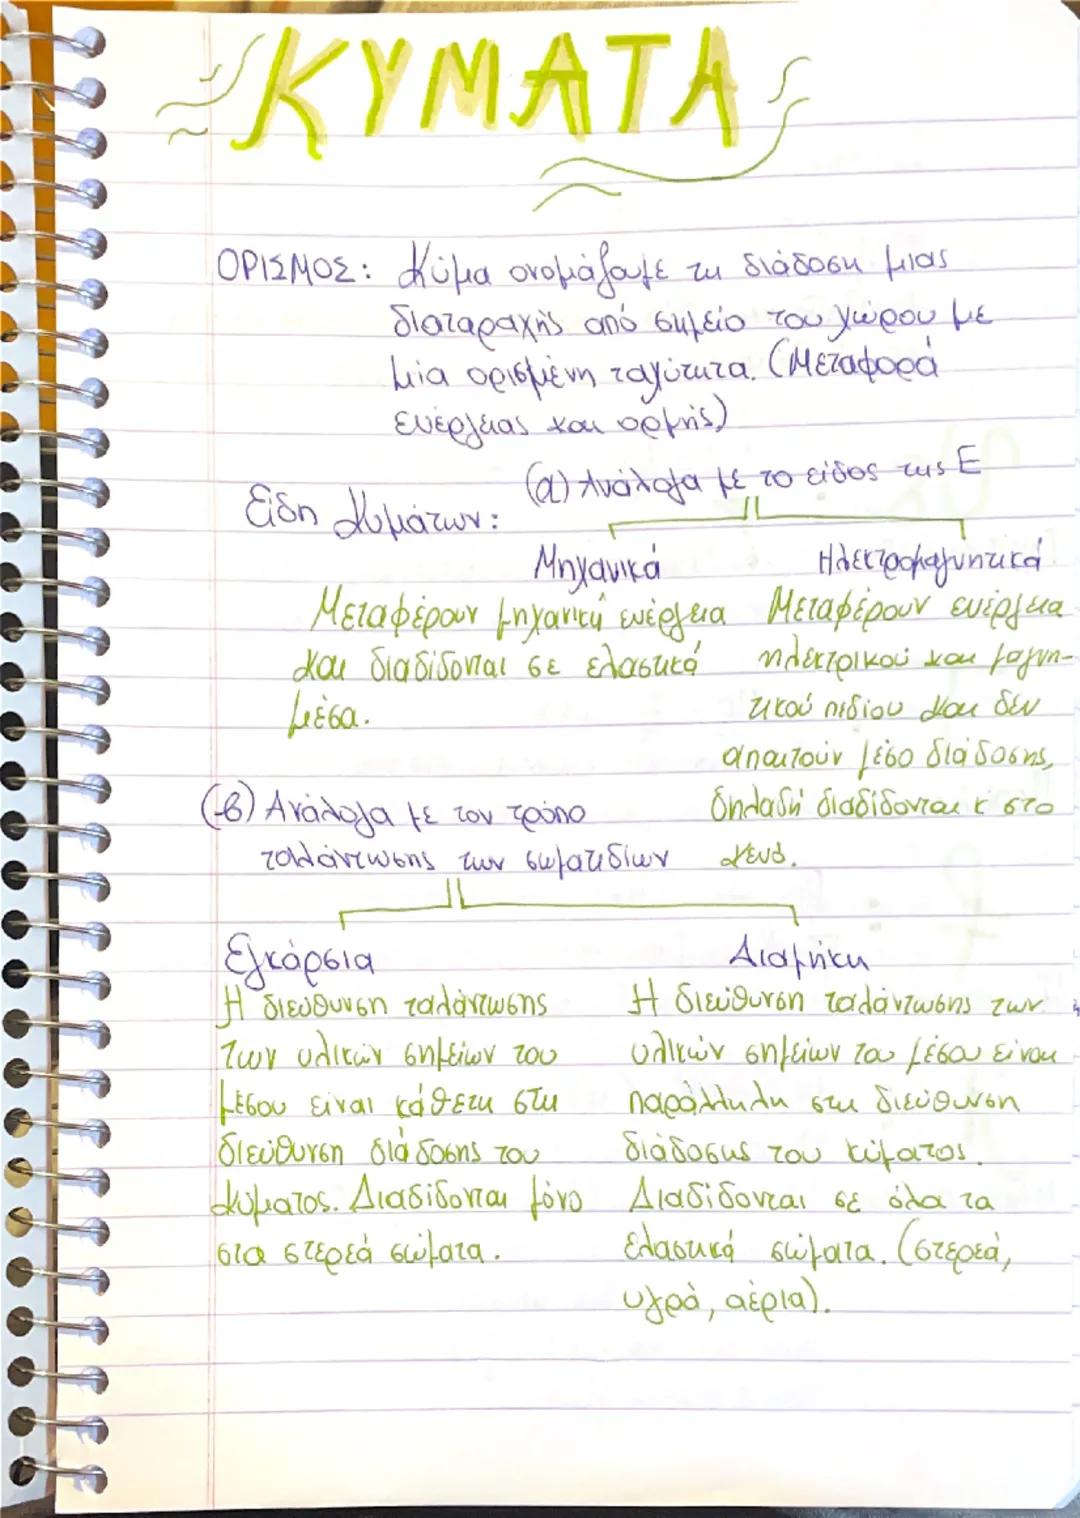 ΚΥΜΑΤΑ
ΟΡΙΣΜΟΣ: Κύμα ονομάζουμε τη διάδοση μιας
διαταραχής από σημείο του χώρου με
μία ορισμένη ταχύτητα. (Μεταφορά
ενέργειας και ορμής)
(α) Ανάλογα με το είδος της Ε
Είδη Κυμάτων:
Μηχανικά
Ηλεκτρομαγνητικά
Μεταφέρουν μηχανική ενέργεια
και διαδίδονται σε ελαστικά
μέσα.
Μεταφέρουν ενέργεια
ηλεκτρικού και μαγνη-
τικού πεδίου και δεν
απαιτούν μέσο διάδοσης,
δηλαδή διαδίδονται κ στο
κενό.
(β) Ανάλογα με τον τρόπο
ταλάντωσης των σωματιδίων
Εγκάρσια
Η διεύθυνση ταλάντωσης
των υλικών σημείων του
μέσου είναι κάθετη στη
διεύθυνση διάδοσης του
κύματος. Διαδίδονται μόνο
στα στερεά σώματα.
Διαμήκη
Η διεύθυνση ταλάντωσης των
υλικών σημείων του μέσου είναι
παράλληλη στη διεύθυνση
διάδοσης του κύματος.
Διαδίδονται σε όλα τα
ελαστικά σώματα. (στερεά,
υγρά, αέρια).